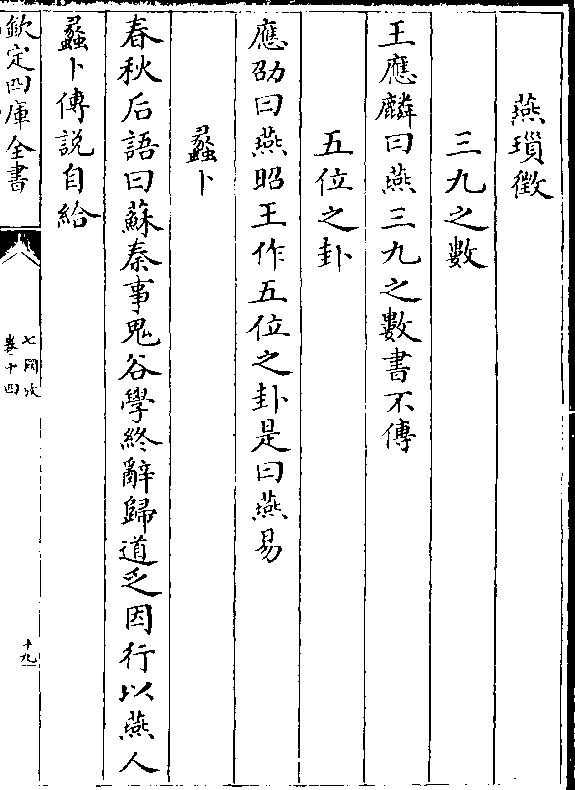 燕瑣徵
三九之數
王應麟曰燕三九之數書不傳
五位之卦
應劭曰燕昭王作五位之卦是曰燕易
蠡卜
春秋后語曰蘇秦事鬼谷學終辭歸道乏因行以燕人
蠡卜傳說自給
欽定四庫全書
七國攷
卷十四
十九